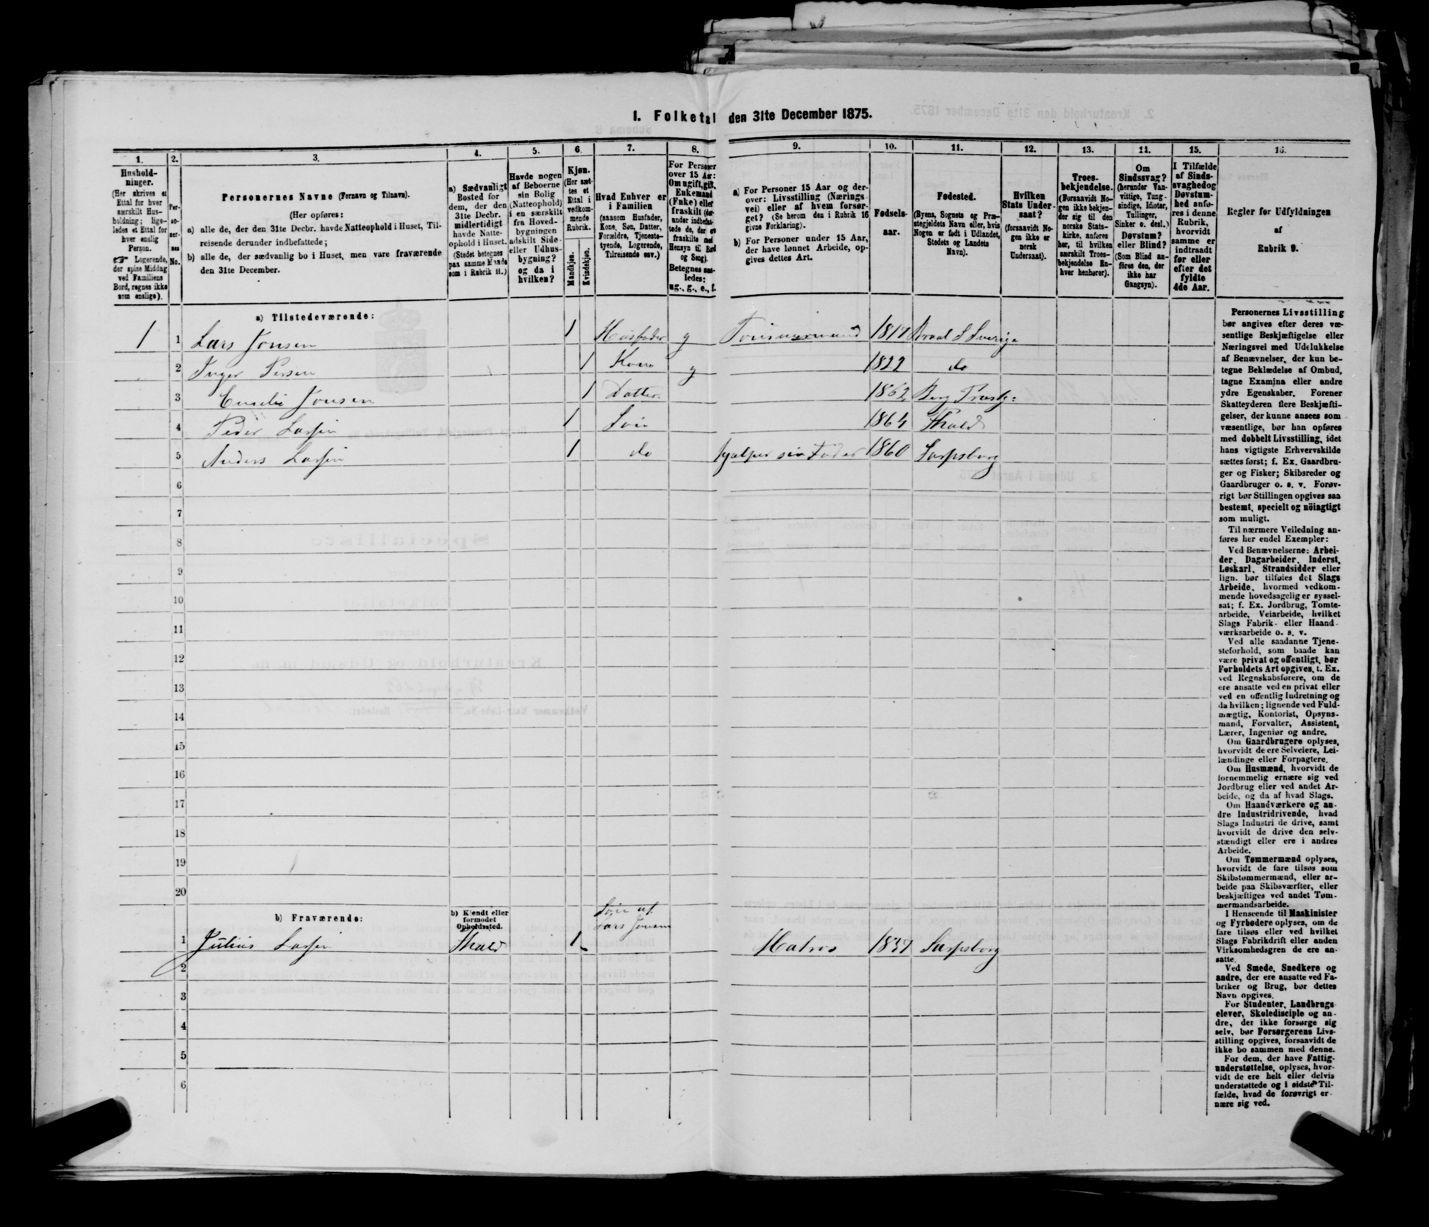 1. Folketal den 31te December 1875.
1.
2.
3.
4.
5.
6.
7.
8.
9.
10.
11.
12.
13.
14.
15.
16.
Hushold-
ninger.
(Her skrives et
Ettal for hver
særskilt Hus-
holdning; lige-
ledes et Ettal for
hver enslig
Person.
Logerende,
der spise Middag
ved Familiens
Bord, regnes ikke
som enslige).
Per-
so-
ner-
nes
No.
Personernes Navne (Fornavn og Tilnavn).
(Her opføres:
a) alle de, der den 31te Decbr. havde Natteophold i Huset, Til-
reisende derunder indbefattede;
b) alle de, der sædvanlig bo i Huset, men vare fraværende
den 31te December.
a) Sædvanligt
Bosted for
dem, der den
31te Decbr.
midlertidigt
havde Natte-
ophold i Huset.
(Stedet betegnes
paa samme Maade
som i Rubrik 11.)
Havde nogen
af Beboerne
sin Bolig
(Natteophold)
i en særskilt
fra Hoved-
bygningen
adskilt Side-
eller Udhus-
bygning?
og da i
hvilken?
Kjøn.
(Her sæt-
tes et
Ettal i
vedkom-
mende
Rubrik.
Mandkjøn.
Kvindekjøn.
Hvad Enhver er
i Familien
(saasom Husfader,
Kone, Søn, Datter,
Forældre, Tjeneste-
tyende, Logerende,
Tilreisende osv.)
For Personer
over 15 Aar:
Om ugift, gift,
Enkemand
(Enke) eller
fraskilt
Betegnes saa-
ledes:
ug., g., e., f.
a) For Personer 15 Aar og der-
over: Livsstilling (Nærings-
vei) eller af hvem forsør-
get? (Se herom den i Rubrik 16
givne Forklaring).
b) For Personer under 15 Aar,
der have lønnet Arbeide, op-
gives dettes Art.
Fødsels-
aar.
Fødested.
(Byens, Sognets og Præ-
stegjeldets Navn eller, hvis
Nogen er født i Udlandet,
Stedets og Landets
Navn).
Hvilken
Stats Under-
saat?
(forsaavidt No-
gen ikke er
norsk
Undersaat).
Troes-
bekjendelse.
(Forsaavidt No-
gen ikke bekjen-
der sig til den
norske Stats-
kirke, anføres
her, til hvilken
særskilt Troes-
bekjendelse En-
hver henhører).
Om
Sindssvag?
(herunder Van-
vittige, Tung-
sindige, Idioter,
Tullinger,
Sinker o. desl.)
Døvstum?
eller Blind?
(Som Blind an-
føres den, der
ikke har
Gangsyn).
I Tilfælde
af Sinds-
svaghed og
Døvstum-
hed anfø-
res i denne
Rubrik,
hvorvidt
samme er
indtraadt
før eller
efter det
fyldte
4de Aar.
Regler for Udfyldningen
af
Rubrik 9.
a) Tilstedeværende:
1 1 Lars Jonsen 1 Husfader g 1817
2 Inger Persen 1 Kone g 1822 do
3 Jonsen 1 Datter 1862
4 Peder Larsen 1 Søn 1864
5 Anders Larsen 1 do hjælper sin Fader 1860 Sarpsborg
6
7
8
9
10
11
12
13
14
15
16
17
18
19
20
b) Fraværende:
b) Kjendt eller
formodet
Opholdssted.
Søn af
Lars Jonsen
1 Julius Larsen 1 Matros Sarpsborg
2
3
4
5
6
Personernes Livsstilling
bør angives efter deres væ-
sentlige Beskjæftigelse eller
Næringsvei med Udelukkelse
af Benævnelser, der kun be-
tegne Beklædelse af Ombud,
tagne Examina eller andre
ydre Egenskaber. Forener
Skatteyderen flere Beskjæfti-
gelser, der kunne ansees som
væsentlige, bør han opføres
med dobbelt Livsstilling, idet
hans vigtigste Erhvervskilde
sættes først; f. Ex. Gaardbru-
ger og Fisker; Skibsreder og
Gaardbruger o. s. v. Forøv-
rigt bør Stillingen opgives saa
bestemt, specielt og nöiagtigt
som muligt.
Til nærmere Veiledning an-
føres her endel Exempler:
Ved Benævnelserne: Arbei-
der, Dagarbeider, Inderst,
Løskarl, Strandsidder eller
lign. bør tilføies det Slags
Arbeide, hvormed vedkom-
mende hovedsagelig er syssel-
sat; f. Ex. Jordbrug, Tomte-
arbeide, Veiarbeide, hvilket
Slags Fabrik- eller Haand-
værksarbeide o. s. v.
Ved alle saadanne Tjene-
steforhold, som baade kan
være privat og offentligt, bør
Forholdets Art opgives, f. Ex.
ved Regnskabsførere, om de
ere ansatte ved en privat eller
ved en offentlig Indretning og
da hvilken; lignende ved Fuld-
mægtig, Kontorist, Opsyns-
mand, Forvalter, Assistent,
Lærer, Ingeniør og andre.
Om Gaardbrugere oplyses,
hvorvidt de ere Selveiere, Lei-
lændinge eller Forpagtere.
Om Husmænd, hvorvidt de
fornemmelig ernære sig ved
Jordbrug eller ved andet Ar-
beide, og da af hvad Slags.
Om Haandværkere og an-
dre Industridrivende, hvad
Slags Industri de drive, samt
hvorvidt de drive den selv-
stændigt eller ere i andres
Arbeide.
Om Tømmermænd oplyses,
hvorvidt de fare tilsøs som
Skibstømmermænd, eller ar-
beide paa Skibsværfter, eller
beskjæftiges ved andet Tøm-
mermandsarbeide.
I Henseende til Maskinister
og Fyrbødere oplyses, om de
fare tilsøs eller ved hvilket
Slags Fabrikdrift eller anden
Virksomhedsgren de ere an-
satte.
Ved Smede, Snedkere og
andre, der ere ansatte ved Fa-
briker og Brug, bør dettes
Navn opgives.
For Studenter, Landbrugs-
elever, Skoledisciple og an-
dre, der ikke forsørge sig
selv, bør Forsørgerens Livs-
stilling opgives, forsaavidt de
ikke bo sammen med denne.
For dem, der have Fattig-
understøttelse, oplyses, hvor-
vidt de ere helt eller delvis
understøttede og i sidste Til-
fælde, hvad de forøvrigt er-
nære sig ved.